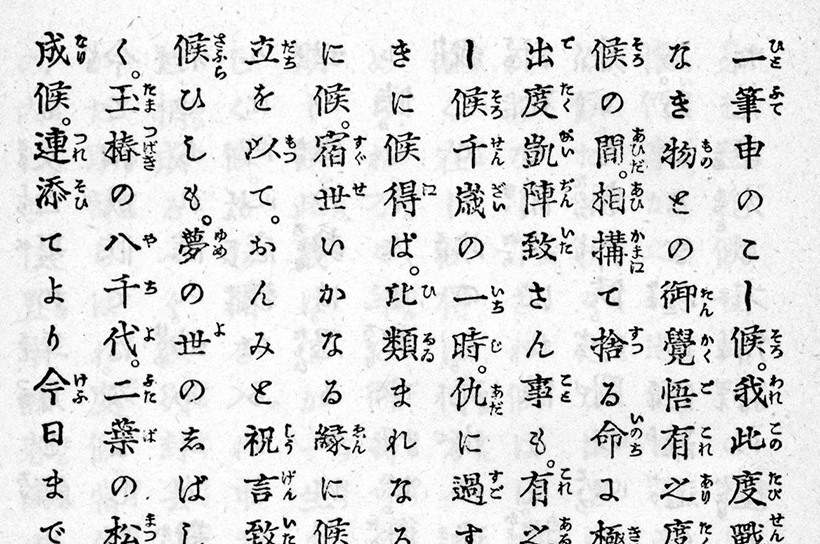 一筆申のこし候。我此度戰
なき物との御覺悟有之度
候の間。相搆て捨る命に極
出度凱陣致さん事も。有之
し候千歳の一時。仇に過す
きに候得ば。比類まれなる
に候。宿世いかなる縁に候
立を以て。おんみと祝言致
候ひしも。夢の世のしばし
く。玉椿の八千代。二葉の松
成候。連添てより今日まで